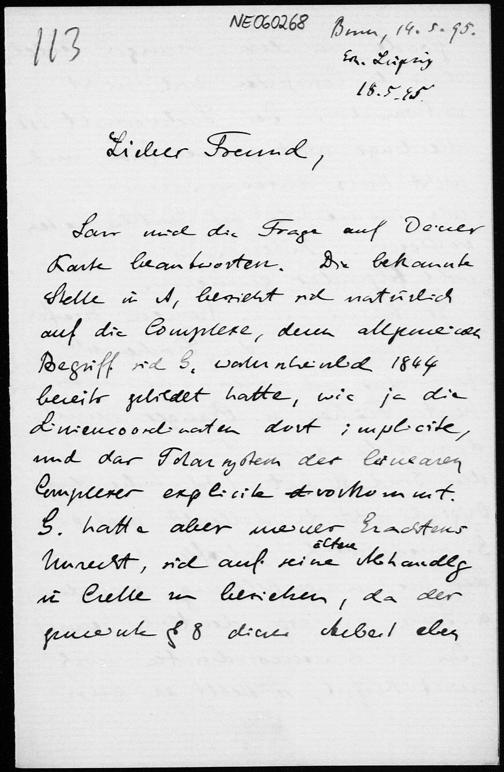 113
NE060268
Bonn, 14.5.95.
Leipzig
18.5.95
Lieber Freund,
Lass mich die Frage auf Deiner
Karte beantworten. Die bekannte
Stelle in A, bezieht sich natürlich
auf die Complexe, deren allgemeinen
Begriff sich G. wahrscheinlich 1844
bereits gebildet hatte, wie ja die
Liniencoordinaten dort implicite,
und das Polarsystem des linearen
Complexes explicite vorkommt.
G. hatte aber meines Erachtens
Unrecht, sich auf seine ältere Abhandlg
in Crelle zu beziehen, da der
gemeinte § 8 dieser Arbeit eben